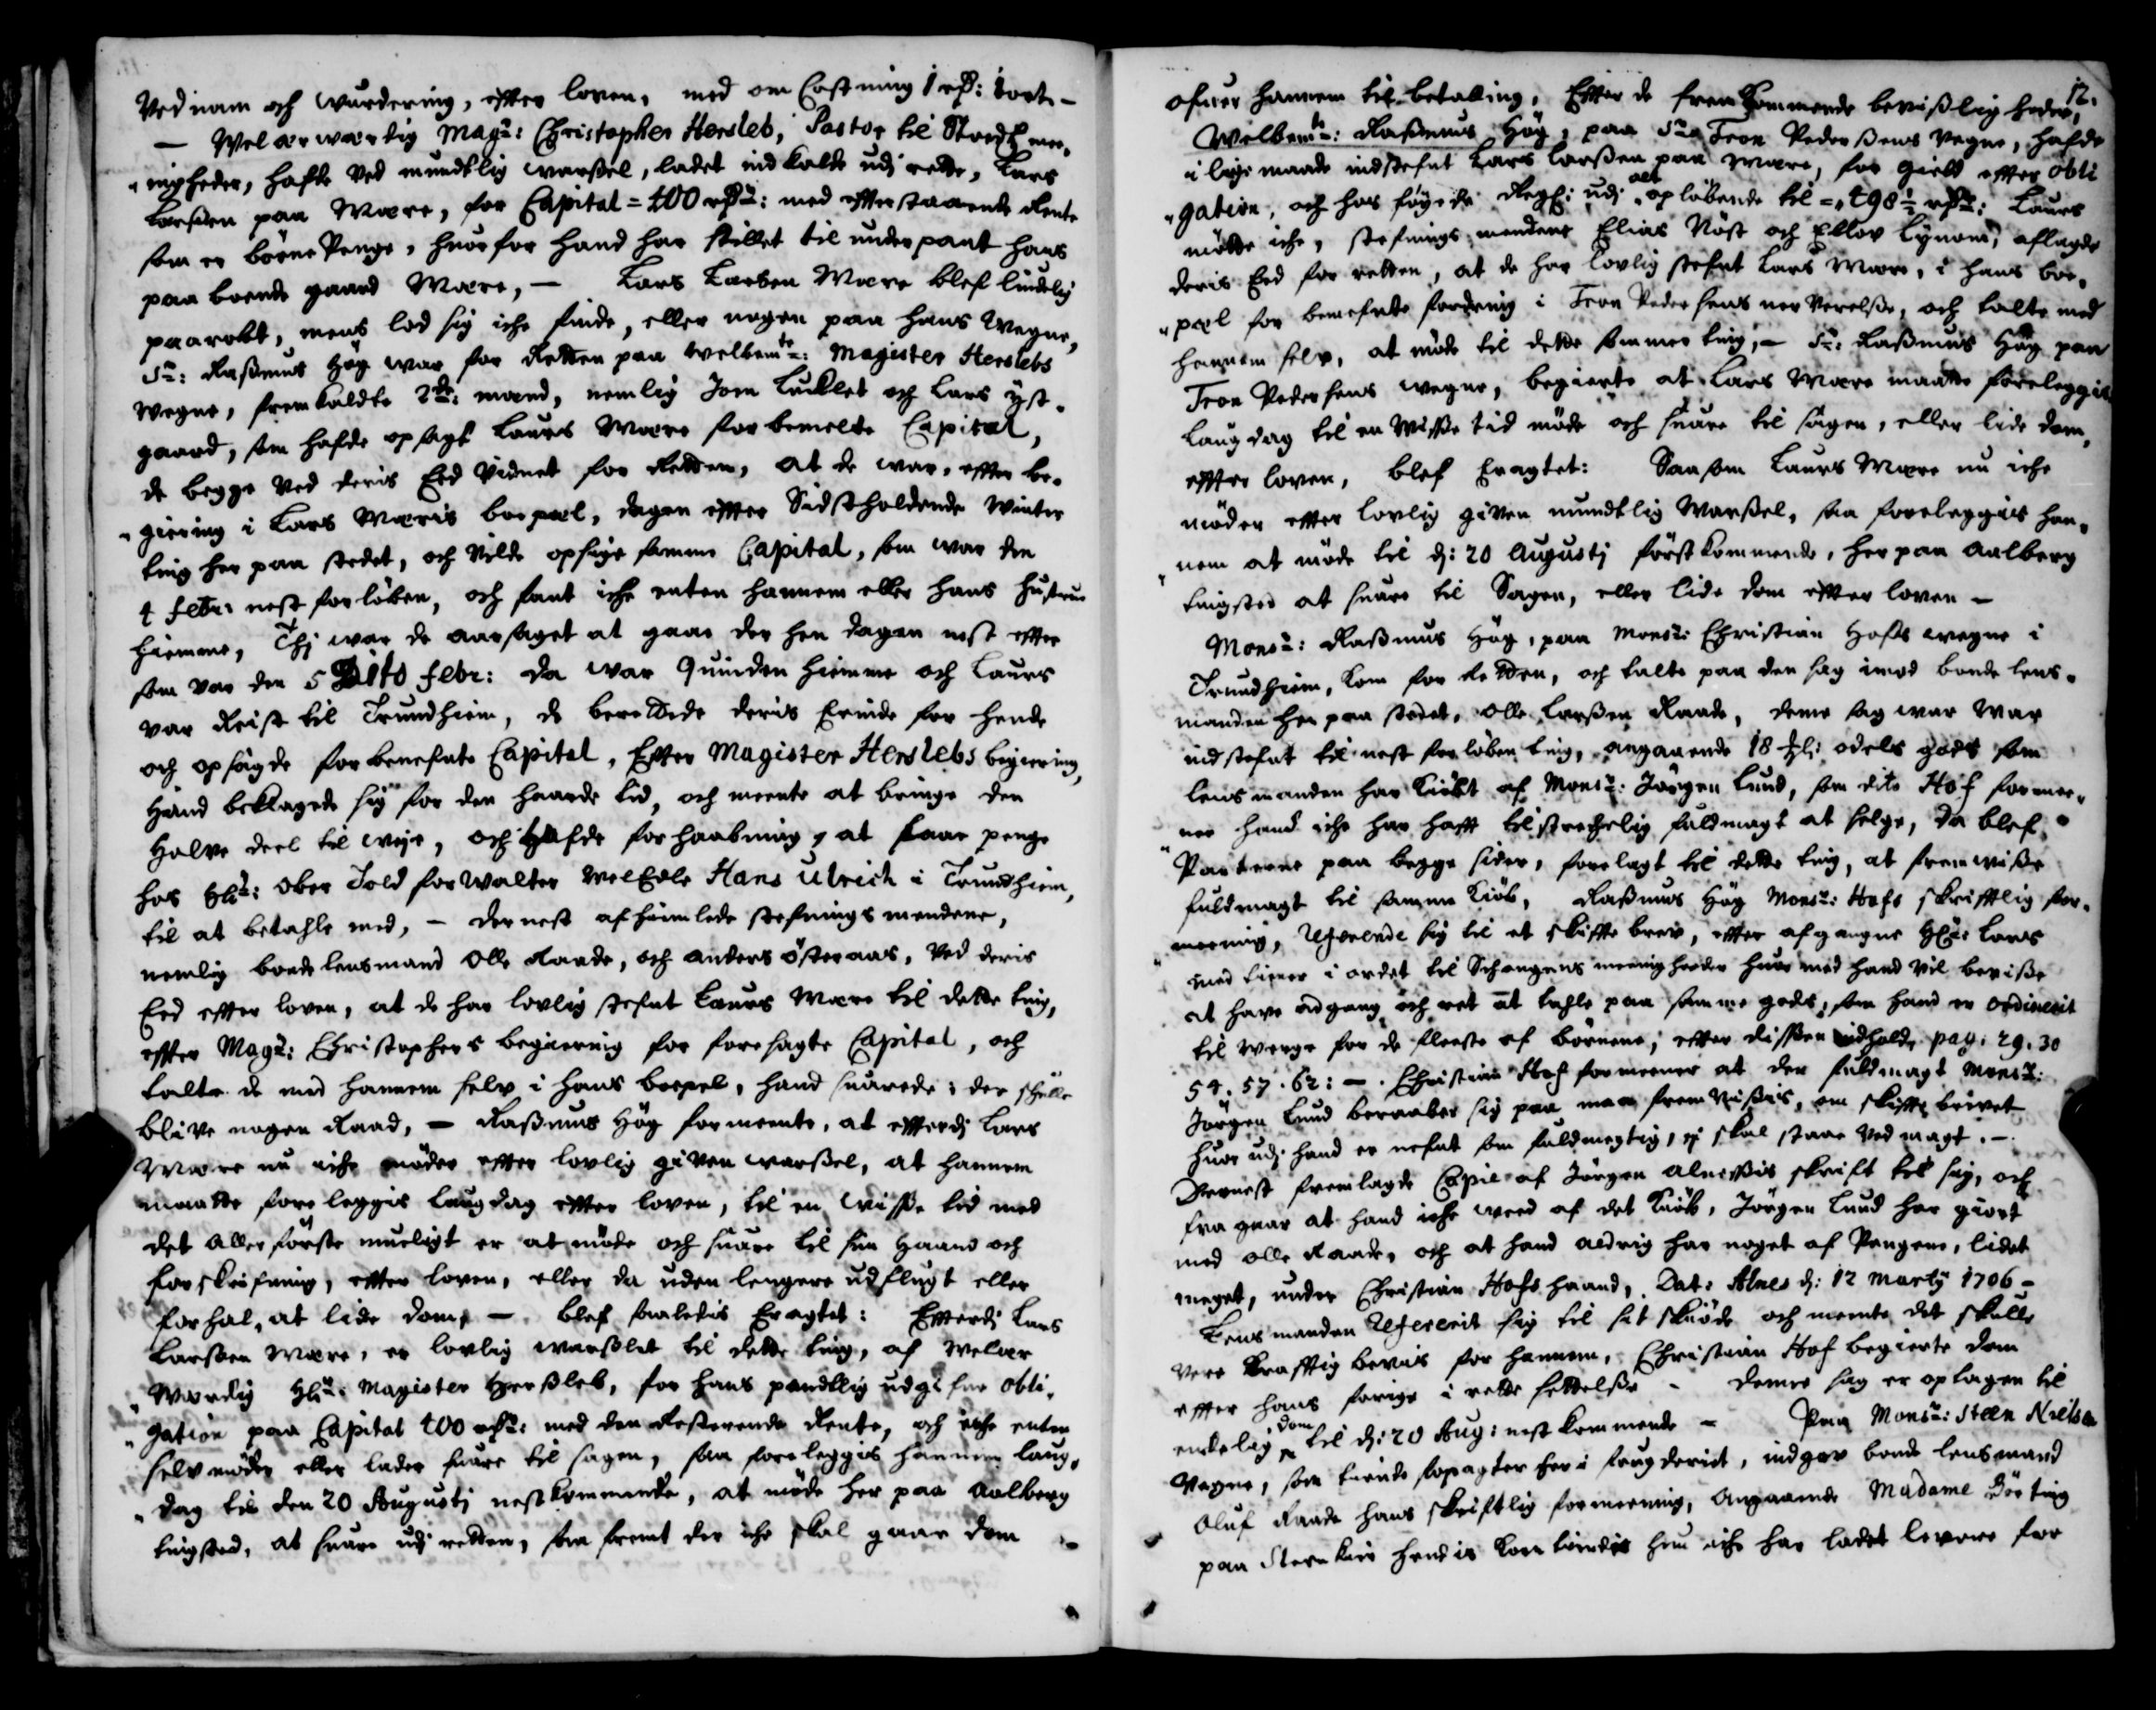 Ved nam och wurdering, effter loven, med om Costning 1 rd: 1 ort. —
— Wel ærwærdig Mag:r Christopher Hersleb, Pastor til Stords mee,
„nigheder, hafde ved mundtlig warßel, ladet ind kalde udj rette, Lars
Larßen paa Wære, for Capital = 400 rd:r med efterstaaende Rente
som er börne Penge, huorfor hand har stillet til underpant hans
paa boende gaard Wære, — Lars Larsen Wære blef liudelig
paarobt, mens lod sig iche finde, eller nogen paa hans Wegne,
Sr: Raßmus Høg war for Retten paa welbemte: Magister Herslebs
wegne, fremkaldte 2de: mænd, nemlig Jon Lucklet och Lars Øst.
gaard, som hafde opsagt Laurs Wære forbemelte Capital,
de begge ved deris Eed Vidnet for Retten, at de war, effter be.
„giering i Lars Wæris boepæl, dagen effter Sidstholdende Winter
ting her paa stedet, och Vilde opsige samme Capital, som war den
4 febr: nest forlöben, och fant iche enten hannem eller hans hustrue
hiemme, Thj war de aarsaget at gaae der hen dagen nest effter
som var den 5 Dito febr: da war Quinden hiemme och Laurs
var Reist til Trundhiem, de berettede deris Erinde for hende
och opsagde forbenefnte Capital, Effter Magister Herslebs begiering,
Hand beklagede sig for den haarde tid, och meente at bringe den
Halve deel til weje, och Hafde forhaabning, at faae penge
hos Hr: Ober Told forWalter WelEdle Hans Ulrich i Trundhiem,
til at betahle med, — dernest afhiemlede stefnings mendene,
nemlig bonde lensmand Olle Raade, och Anders Österaas, ved deris
Eed effter loven, at de har lovlig stefnt Laurs Wære til dette ting,
effter Mag:r Christophers begiering for foresagte Capital, och
talte de med hannem selv i hans boepel, hand suarede; der schulle
blive nogen Raad, — Raßmus Høg formeente, at effterdj Lars
Wære nu iche møder effter lovlig given warßel, at hannem
maatte foreleggis laugdag effter loven, til en wisse tid med
det allerførste mueligt er at møde och suare til sin Haand och
forskrifning, effter loven, eller da uden lengere udflugt eller
forhal, at lide dom, — blef saaledis Eragtet: Effterdj Lars
Larßen Wære, er lovlig warßlet til dette ting, af Welær
„Wærdig Hr: Magister Herßleb, for hans pandtlig udgifne obli,
„gation paa Capital 400 rd:r med den Resterende Rente, och iche enten
selv møder eller lader suare til sagen, saa foreleggis hannem laug,
„dag til den 20 Augustj nestkommende, at møde her paa Aalberg
tingsted, at suare udj retten, saa fremt der iche skal gaae dom
12.
ofuer hannem til betalling, Effter de fremkommende bevißlig heder,
Welbemte: Raßmus Høg, paa Sr: Tron Pederßens vegne, hafde
i lige maade indstefnt Lars Larßen paa Wære, for gield effter obli
„gation, och hos føyede Regn: udj alt opløbende til = 498½ rd:r Laurs
mötte iche, stefnings mendene Elias Nöst och Ellov Lynum, aflagde
deris Eed for retten, at de har lovlig stefnt Lars Wære, i hans boe.
„pæl for benefnte fordring i Tron Pedersens nerverelße, och talte med
hannem selv, at møde til dette sommer ting, — Sr: Raßmus Høg paa
Tron Pedersens wegne, begierte at Lars Wære maatte foreleggis
Laugdag til en Wisse tid møde och suare til sagen, eller lide dom,
effter loven, blef Eragtet: Saasom Laurs Wære nu iche
møder effter lovlig given mundtlig Warßel, saa foreleggis han„
„nem at møde til d: 20 Augustj förstkommende, her paa Aalberg
tingsted at suare til Sagen, eller lide dom effter loven —
Mons:r Raßmus Høg, paa Mons:r Christian Hofs wegne i
Trundhiem, kom for Retten, och talte paa den sag imod bonde lens.
manden her paa stedet, Olle Larßen Raade, denne sag war War
indstefnt til nest forløben ting, angaaende 18 odels gods som
lensmanden har Kiøbt af Mons:r Jörgen Lund, som dito Hof formee„
ner hand iche har hafft tilstrechelig fuldmagt at selge, da blef
Parterne paa begge sider, forelagt til dette ting, at fremwiße
fuldmagt til samme Kiøb, Raßmus Høg Mons:r Hofs skrifftlig for.
meening, Refererede sig til et skiffte brev, effter afgangne Hr: Lars
med i ordet til Schongens meenigheder huor med hand vil beviße
at have adgang och ret at tahle paa samme gods, som hand er ordinerit
til Werge for de fleeste af börnene, effter dißen indhold, pag: 29. 30
54. 57. 62: —. Christian Hof formeener at den fuldmagt Mons:r
Jörgen Lund beraaber sig paa maa fremvißis, om skiffte brevet
huor udj hand er nefnt som fuldmegtig, ej skal staae ved magt. —
Dernest fremlagde Copie af Jörgen Alnessis skrift til sig, och
fra gaar at hand iche weed af det Kiøb, Jörgen Lund har giort
med Olle Raade, och at hand aldrig har noget af Pengene, lidet
meget, under Christian Hofs haand, Dat: Alnes d: 12 Martij 1706 —
Lensmanden Refererit sig til sit skiøde och meente det skulle
vere krafftig bevis for hannem, Christian Hof begierte dom
effter hans forige i rette settelße — denne sag er optagen til
endelig dom til d: 20 Aug: nestkommende — Paa Mons:r Steen Nielsen
Wegne, som tiende forpagter her i fougderiet, indgav bonde lensmand
Oluf Raade hans skriftlig formeening, angaaende Madame Dorting
paa Steenkier hendis Korn tiende hun iche har ladet levere for